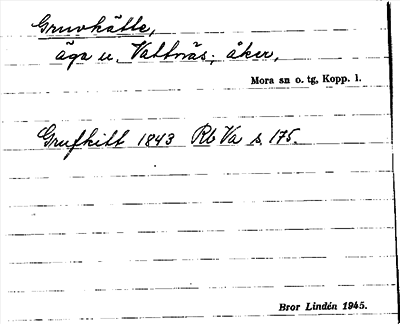 Gruvkätte,
äga u. Vattnäs; åker,
Mora sn o. tg, Kopp. l.
Grufkitt 1843 Rb Va s. 175.
Bror Lindén 1945.